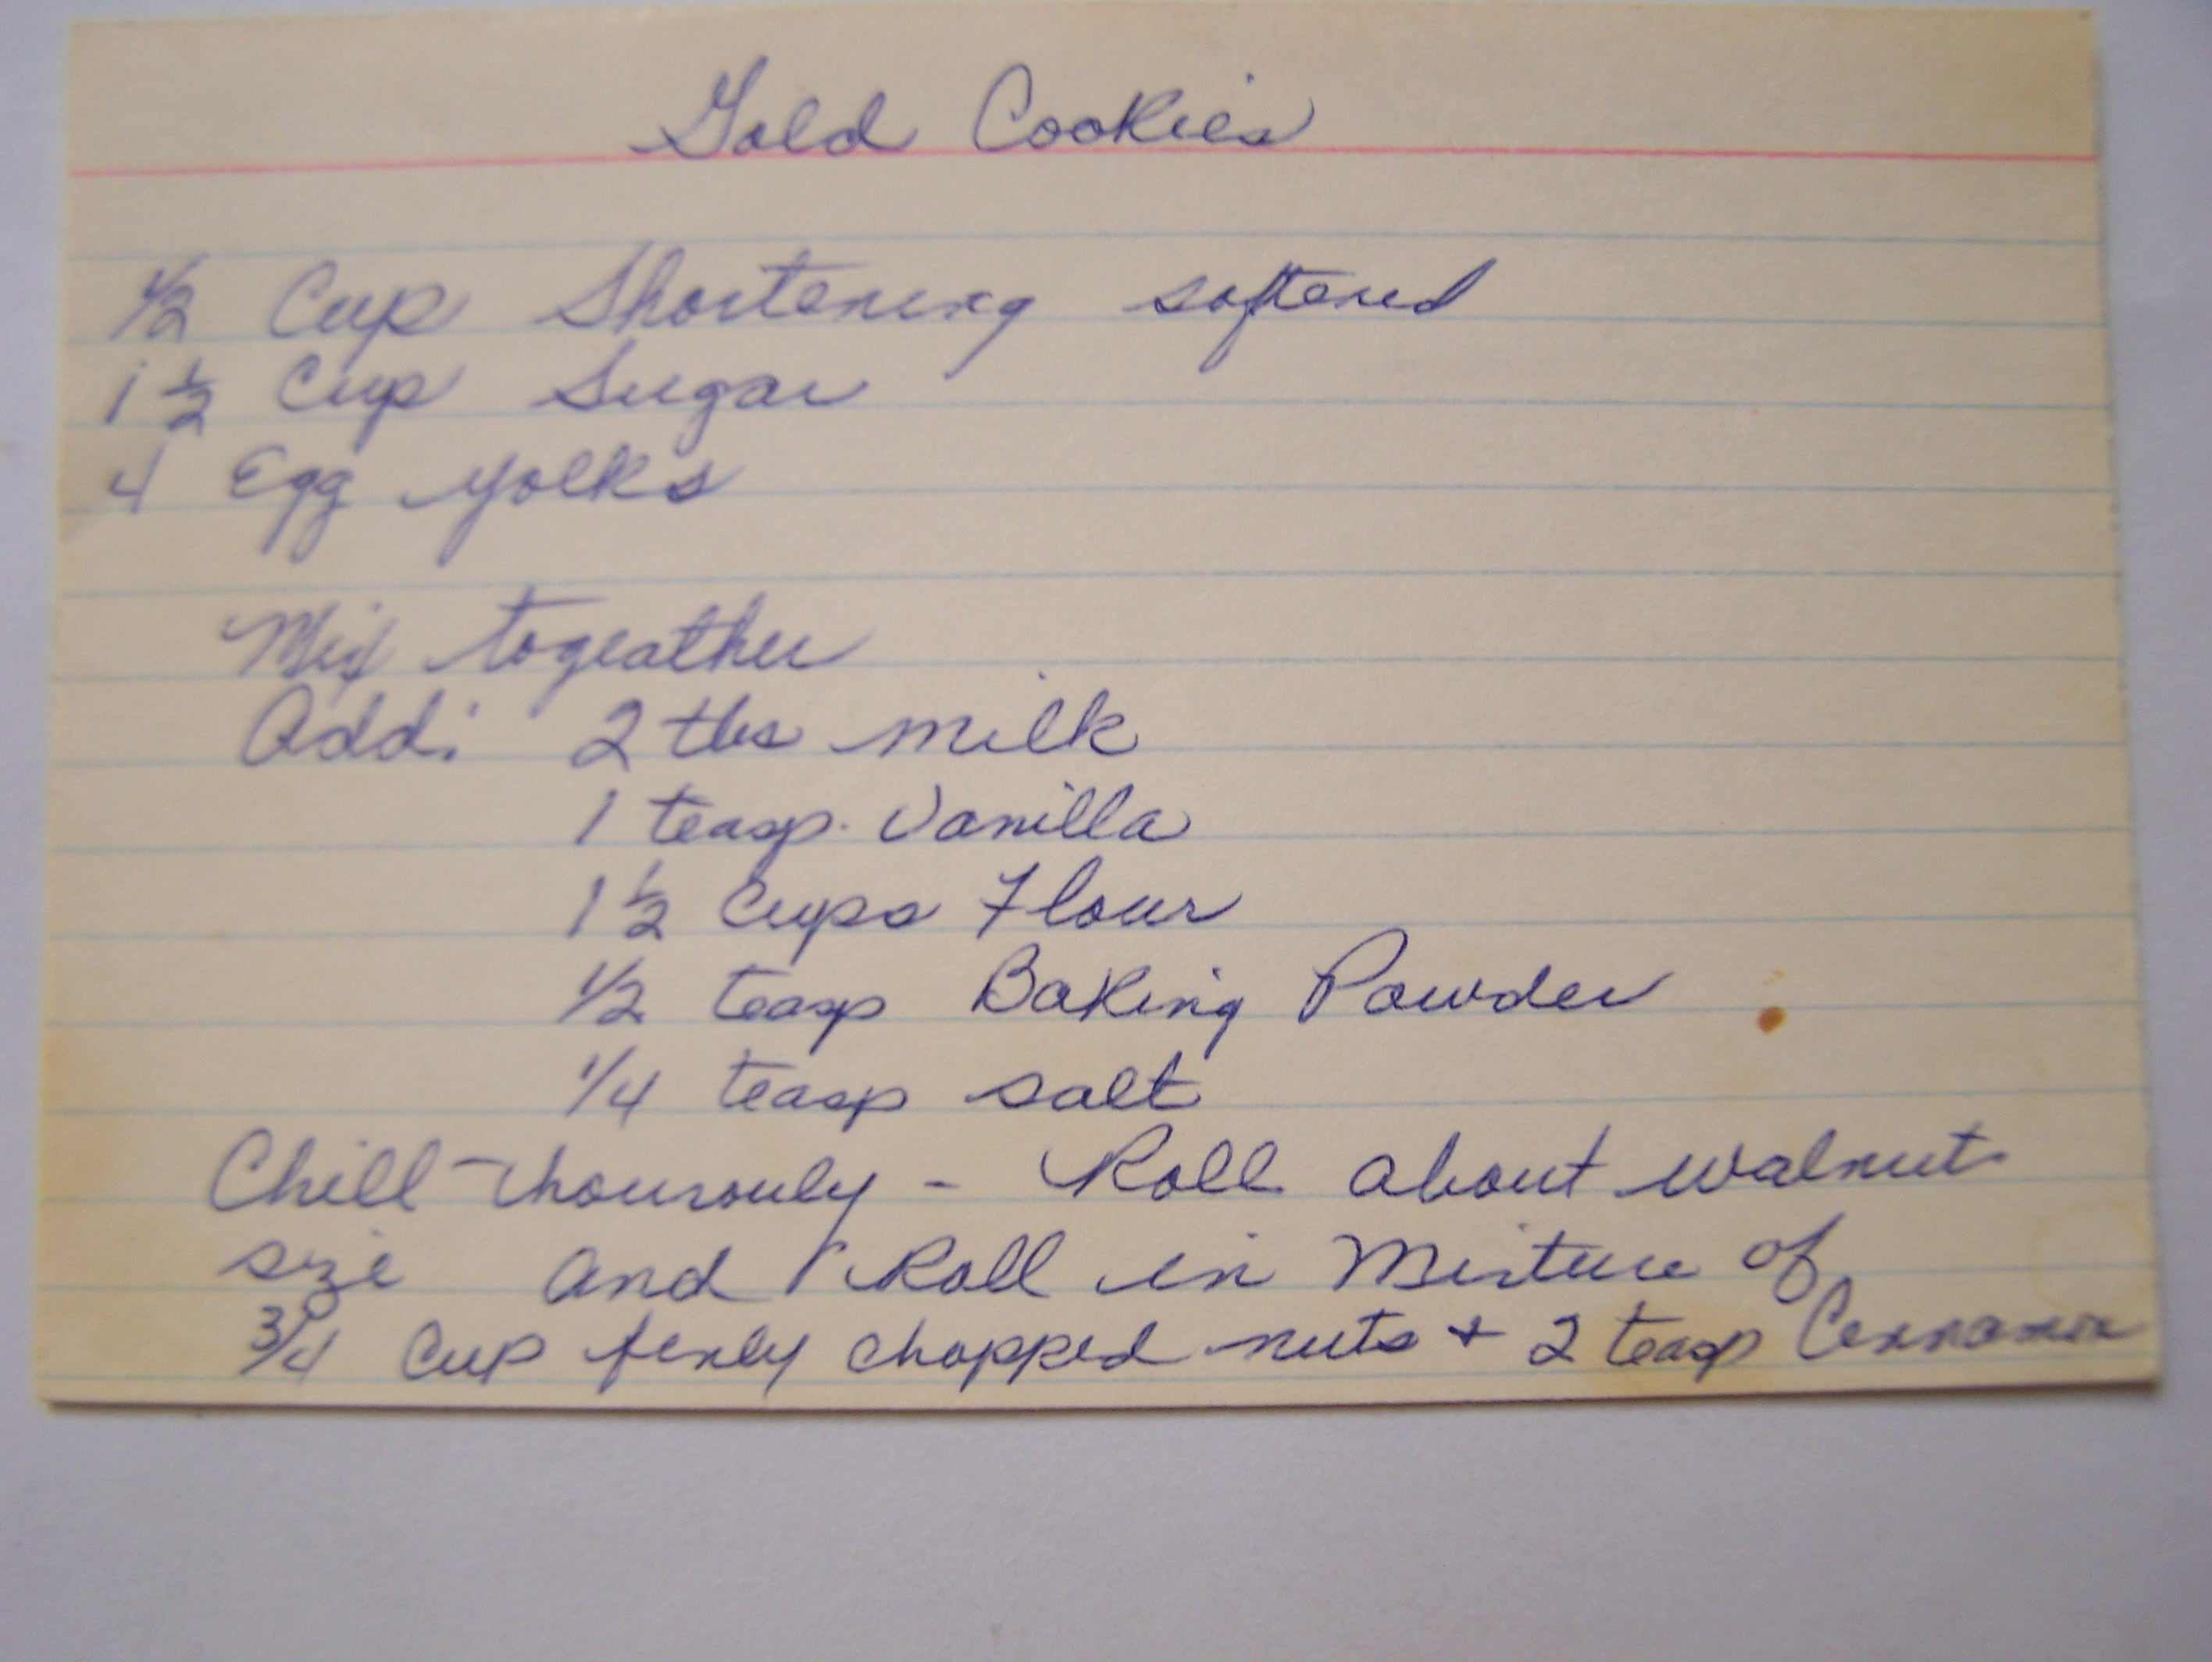 Gold Cookies
1/2 Cup Shortening softened
1 1/2 Cup Sugar
4 Egg yolks
Mix togeather
Add: 2 tbs milk
1 teasp. Vanilla
1 1/2 Cups Flour
1/2 teasp Baking Powder
1/4 teasp salt
Chill thourouly - Roll about walnut
size and Roll in Mixture of
3/4 Cup finly chopped nuts + 2 teasp Cinnamon